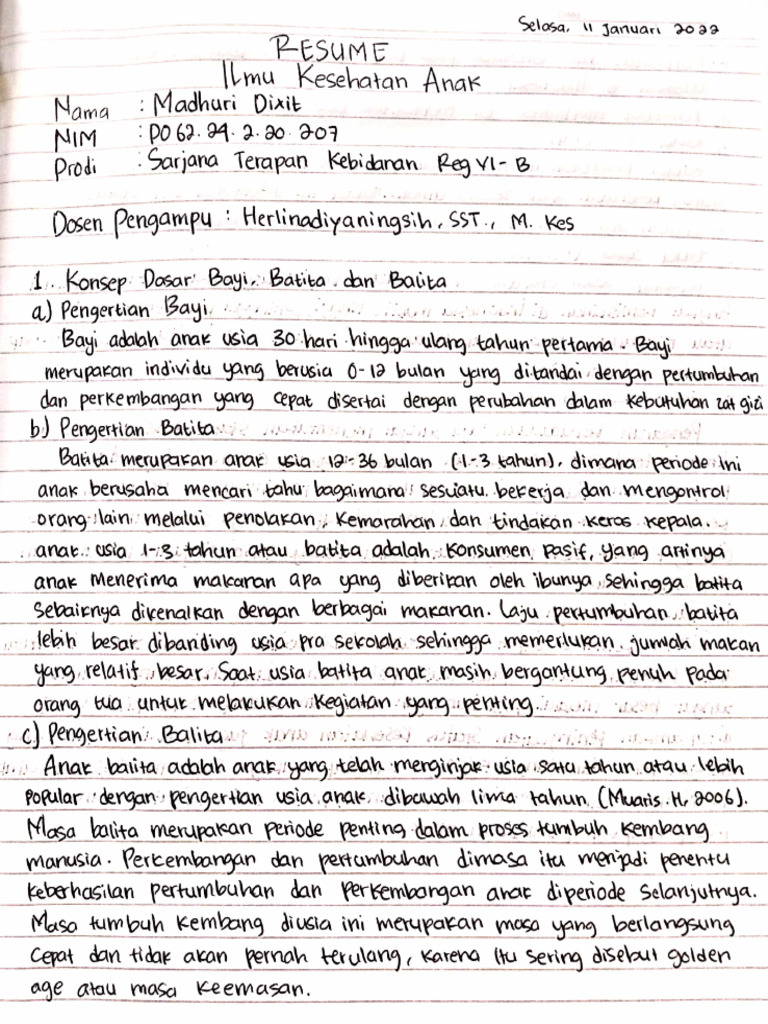 Selasa, 11 Januari 2022
RESUME
Ilmu Kesehatan Anak
Nama : Madhuri Dixit
NIM : PO 62.24.2.20.207
Prodi : Sarjana Terapan Kebidanan Reg VI - B
Dosen Pengampu : Herlinadiyaningsih, SST., M. Kes
1. Konsep Dasar Bayi, Batita dan Balita
a) Pengertian Bayi
Bayi adalah anak usia 30 hari hingga ulang tahun pertama. Bayi
merupakan individu yang berusia 0-12 bulan yang ditandai dengan pertumbuhan
dan perkembangan yang cepat disertai dengan perubahan dalam kebutuhan zat gizi
b) Pengertian Batita
Batita merupakan anak usia 12-36 bulan (1-3 tahun), dimana periode ini
anak berusaha mencari tahu bagaimana sesuatu bekerja dan mengontrol
orang lain melalui penolakan, kemarahan dan tindakan keras kepala.
anak usia 1-3 tahun atau batita adalah konsumen pasif, yang artinya
anak menerima makanan apa yang diberikan oleh ibunya sehingga batita
sebaiknya dikenalkan dengan berbagai makanan. Laju pertumbuhan batita
lebih besar dibanding usia pra sekolah sehingga memerlukan jumlah makan
yang relatif besar. Saat usia batita anak masih bergantung penuh pada
orang tua untuk melakukan kegiatan yang penting.
c) Pengertian Balita
Anak balita adalah anak yang telah menginjak usia satu tahun atau lebih
popular dengan pengertian usia anak dibawah lima tahun (Muaris.H, 2006).
Masa balita merupakan periode penting dalam proses tumbuh kembang
manusia. Perkembangan dan pertumbuhan dimasa itu menjadi penentu
keberhasilan pertumbuhan dan perkembangan anak diperiode selanjutnya.
Masa tumbuh kembang diusia ini merupakan masa yang berlangsung
cepat dan tidak akan pernah terulang, karena itu sering disebut golden
age atau masa keemasan.